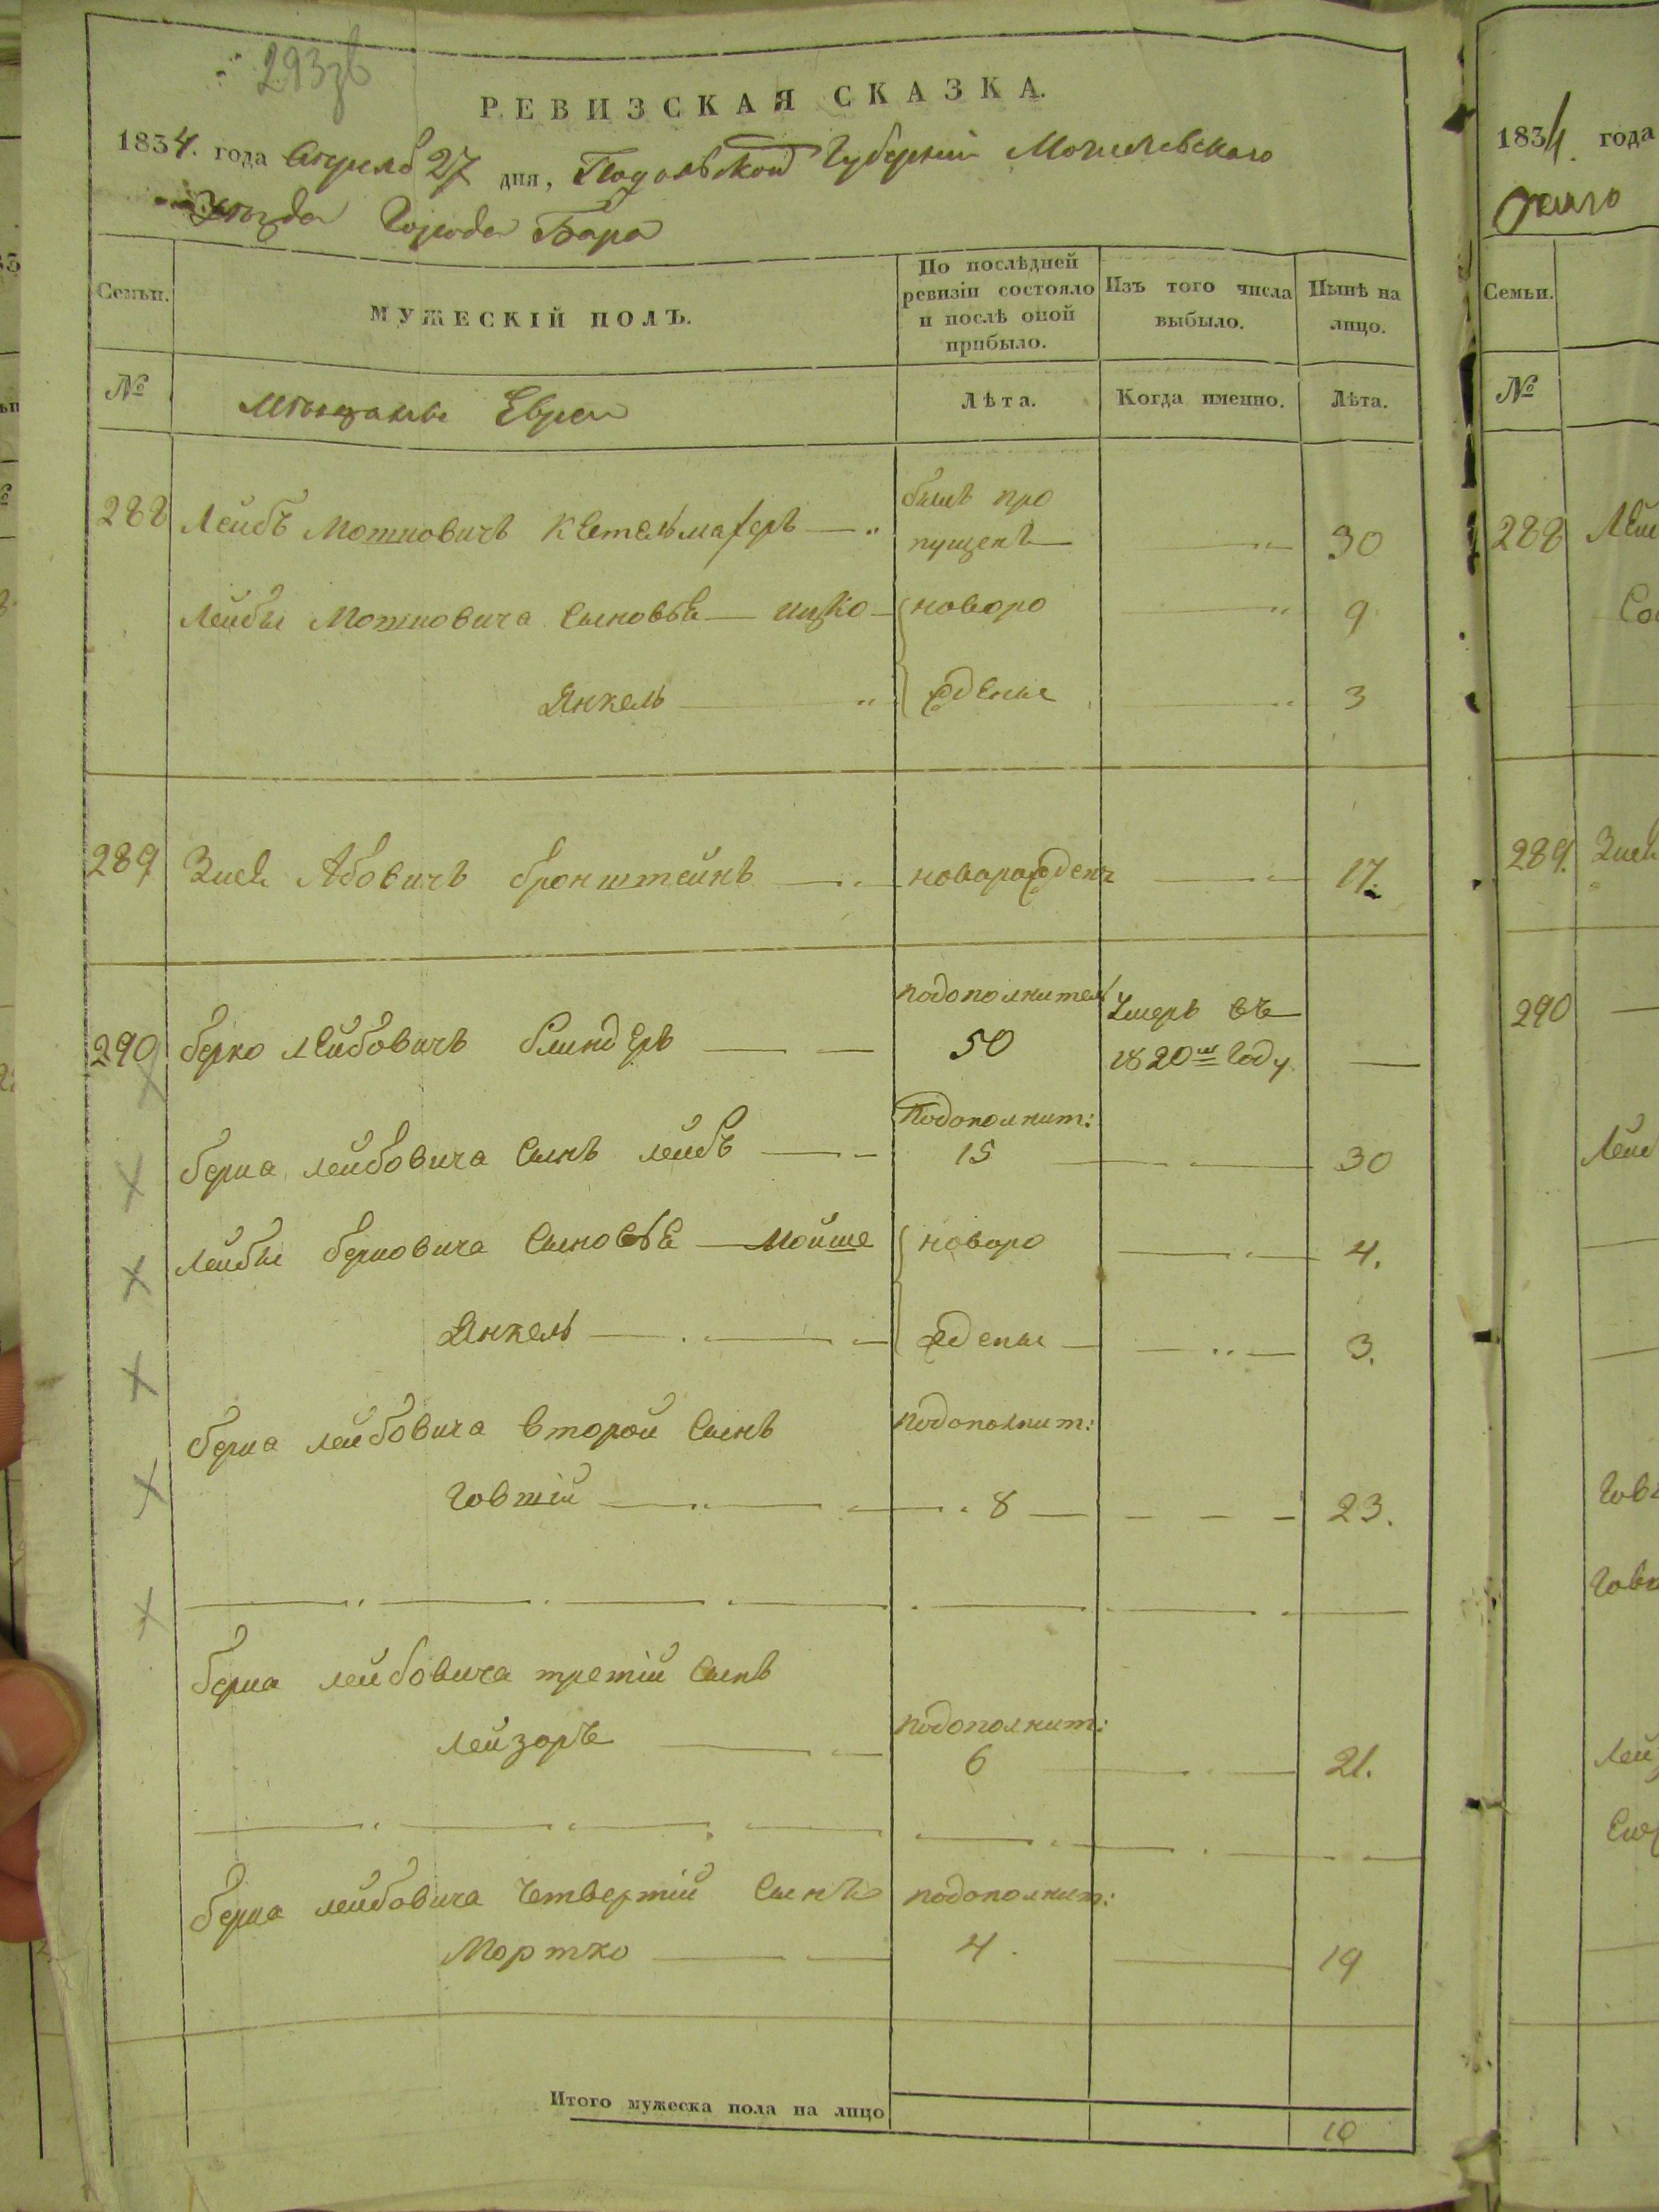 293зв
РЕВИЗСКАЯ СКАЗКА.
1834. года Апреля 27 дня, Подольской Губернии Могилевского
Уезда Города Бара
Семьи.
МУЖЕСКІЙ ПОЛЪ.
По послѣдней ревизіи состояло и послѣ оной прибыло.
Изъ того числа выбыло.
Нынѣ на лицо.
№
Мѣщане Евреи
Лѣта.
Когда именно.
Лѣта.
288 Лейбъ Мошковичъ Кетельмахеръ былъ про
пущенъ 30
Лейбы Мошковича сыновья Ицко новоро 9
Янкель жденые 3
289 Зись Абовичъ Бронштейнъ новорожденъ 17.
290 Берко Лейбовичъ Блиндеръ подополнител 50 Умеръ въ
1820мъ Году
Берка Лейбовича Сынъ Лейбъ Подополнит: 15 30
Лейбы Берковича Сыновья Мойше новоро 4.
Янкель жденые 3.
Берка Лейбовича второй Сынъ подополнит:
Говшій 8 23.
Берка Лейбовича третій Сынъ
Лейзоръ подополнит: 6 21.
Берка Лейбовича Четвертій Сынъ подополнит:
Мортко 4. 19
Итого мужеска пола на лицо 10
1834. года
Семьи.
№
288
289. Зись
290